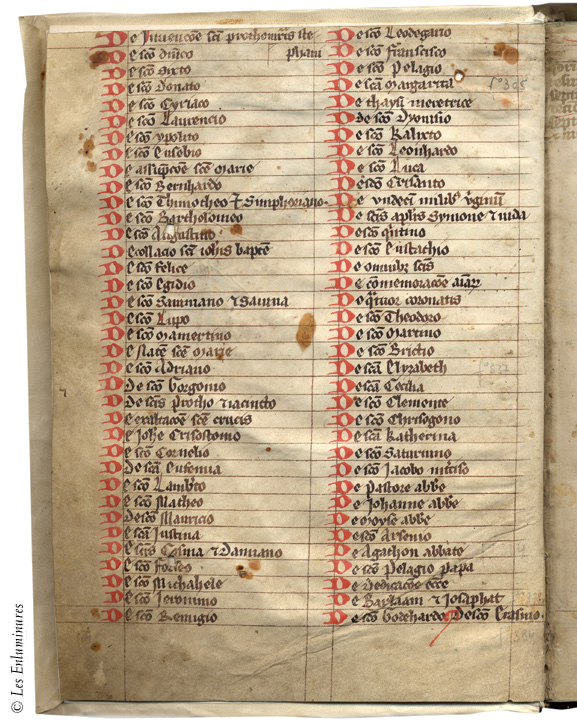 De Inuencōe scī prothom̄ris ste
phani
De scō Dn̄ico
De scō Sixto
De scō Donato
De scō Cyriaco
De scō Laurencio
De scō ypolito
De scō Eusebio
De assūpcōe scē Marie
De scō Bernhardo
De scō Thimotheo & Simphoriano.
De scō Bartholomeo
De scō Augustino
Decollacio scī ioh̄is bap̄te
De scō felice
De scō Egidio
De scō Sauiniano & Sauina
De scō Lupo
De scō Mamertino
De natē scē Marie
De scō Adriano
De scō Gorgonio
De scīs Protho & iacincto
De exaltacōe scē crucis
De Joh̄e Crisostomo
De scō Cornelio
De scā Eufemia
De scō Lamb̄to
De scō Matheo
De scō Mauricio
De scā Iustina
De scīs Cosma & Damiano
De scō Forseo
De scō Michahele
De scō Ieronimo
De scō Remigio
De scō Leodegario
De scō francisco
De scō Pelagio
De scā Margarita
fº 305
De thaysi meretrice
De scō Dyonisio
De scō Kalixto
De scō Leonhardo
De scō Luca
De scō Crisanto
De vndecim milib' v̄ginū
De scīs aplīs Symone & iuda
De scō q̄ntino
De scō Eustachio
De om̄ibz scīs
De cōmemoracōe aīarꝝ
De q̄tuor coronatis
De scō Theodoro
De scō Martino
De scō Briccio
De scā Elyzabeth
De scā Cecilia
De scō Clemente
De scō Chrisogono
De scā Katherina
De scō Saturnino
De scō Jacobo intciso
De Pastore abb̄e
De Johanne abb̄e
De moyse abb̄e
De scō Arsenio
De Agathon abbate
De scō Pelagio papa
De dedicacōe ecc̄e
De Barlaam & Josaphat
De scō Gothardo De scō Erasmo.
© Les Enluminures